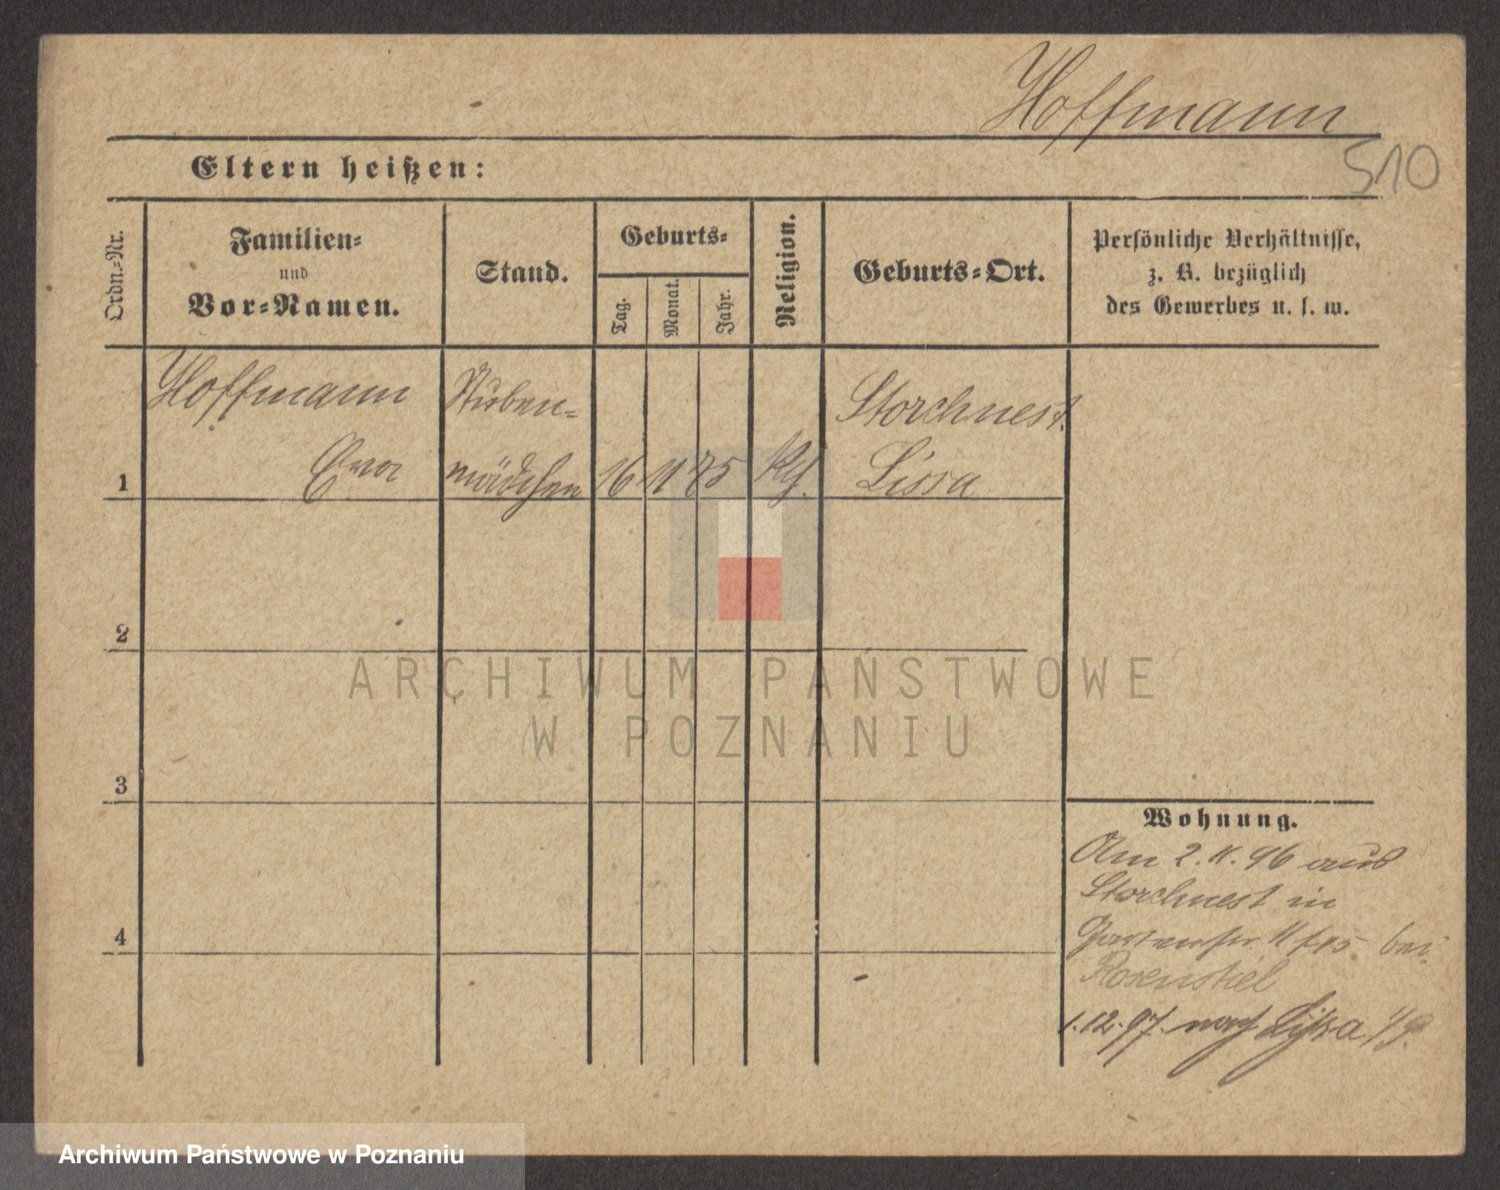 Hoffmann
510
Eltern heißen:
Ordn.-Nr.
Familien-
und
Vor-Namen.
Stand.
Geburts-
Tag.
Monat.
Jahr.
Religion.
Geburts-Ort.
Persönliche Verhältnisse,
z. B. bezüglich
des Gewerbes u. s. w.
Hoffmann Stuben- Storchnest
1 Eva mädchen 16 11 75 Kth. Lissa
2
ARCHIWUM PAŃSTWOWE
W POZNANIU
3
Wohnung.
Am 2. 11. 96 aus
Storchnest in
Gartenstr. bei
4
1.12.97. nach Lissa i/P.
Archiwum Państwowe w Poznaniu